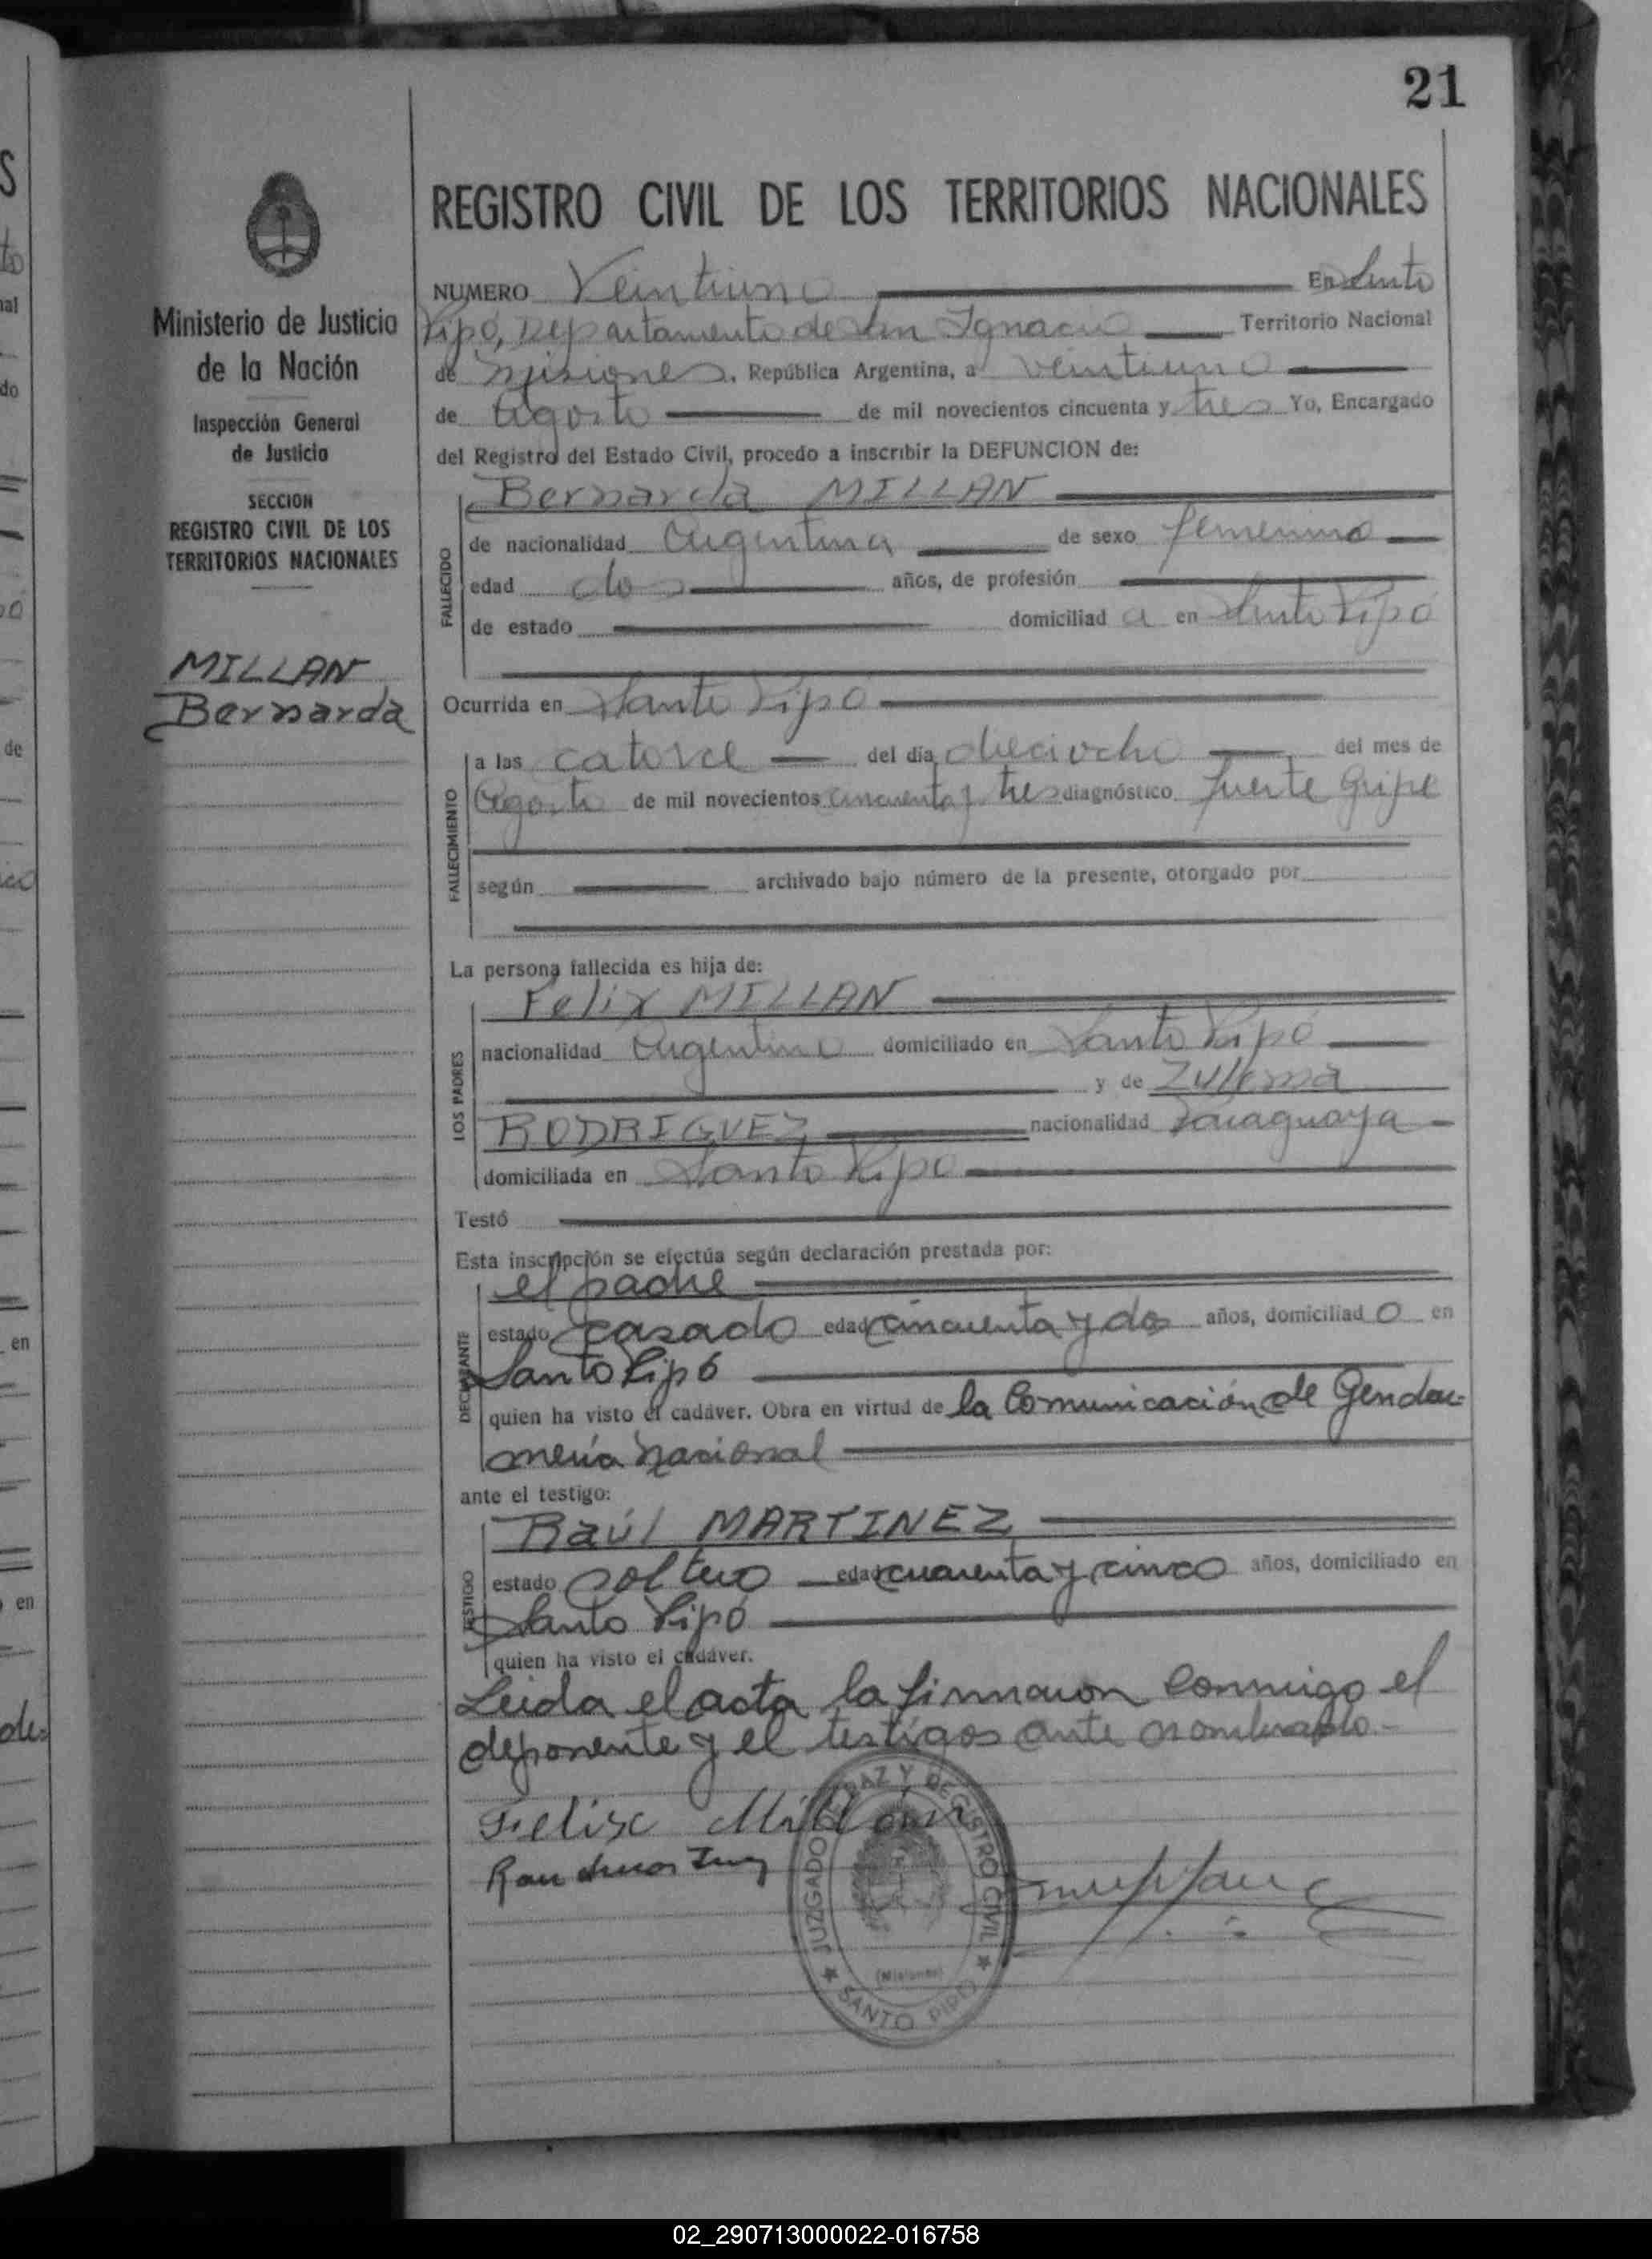 21
REGISTRO CIVIL DE LOS TERRITORIOS NACIONALES
Ministerio de Justicia
de la Nación
Inspección General
de Justicia
SECCION
REGISTRO CIVIL DE LOS
TERRITORIOS NACIONALES
MILLAN
Bernarda
NUMERO Veintiuno En Santo
Pipó, Departamento de San Ignacio Territorio Nacional
de Misiones, República Argentina, a veintiuno
de Agosto de mil novecientos cincuenta y tres Yo, Encargado
del Registro del Estado Civil, procedo a inscribir la DEFUNCION de:
FALLECIDO
Bernarda MILLAN
de nacionalidad Argentina de sexo femenino
edad dos años, de profesión
de estado domiciliad a en Santo Pipó
Ocurrida en Santo Pipó
FALLECIMIENTO
a las catorce del día dieciocho del mes de
Agosto de mil novecientos cincuenta y tres diagnóstico fuerte Gripe
según archivado bajo número de la presente, otorgado por
La persona fallecida es hija de:
LOS PADRES
Felix MILLAN
nacionalidad Argentino domiciliado en Santo Pipó
y de Zulema
RODRIGUEZ nacionalidad Paraguaya
domiciliada en Santo Pipó
Testó
Esta inscripción se efectúa según declaración prestada por:
DECLARANTE
el padre
estado casado edad cincuenta y dos años, domiciliad o en
Santo Pipó
quien ha visto el cadáver. Obra en virtud de la Comunicación de Gendar-
mería Nacional
ante el testigo:
TESTIGO
Raúl MARTINEZ
estado soltero edad cuarenta y cinco años, domiciliado en
Santo Pipó
quien ha visto el cadáver.
Leida el acta la firmaron conmigo el
deponente y el testigos ante nombrado.-
Felix Millan
JUZGADO DE PAZ Y REGISTRO CIVIL
(Misiones)
SANTO PIPO
02_290713000022-016758